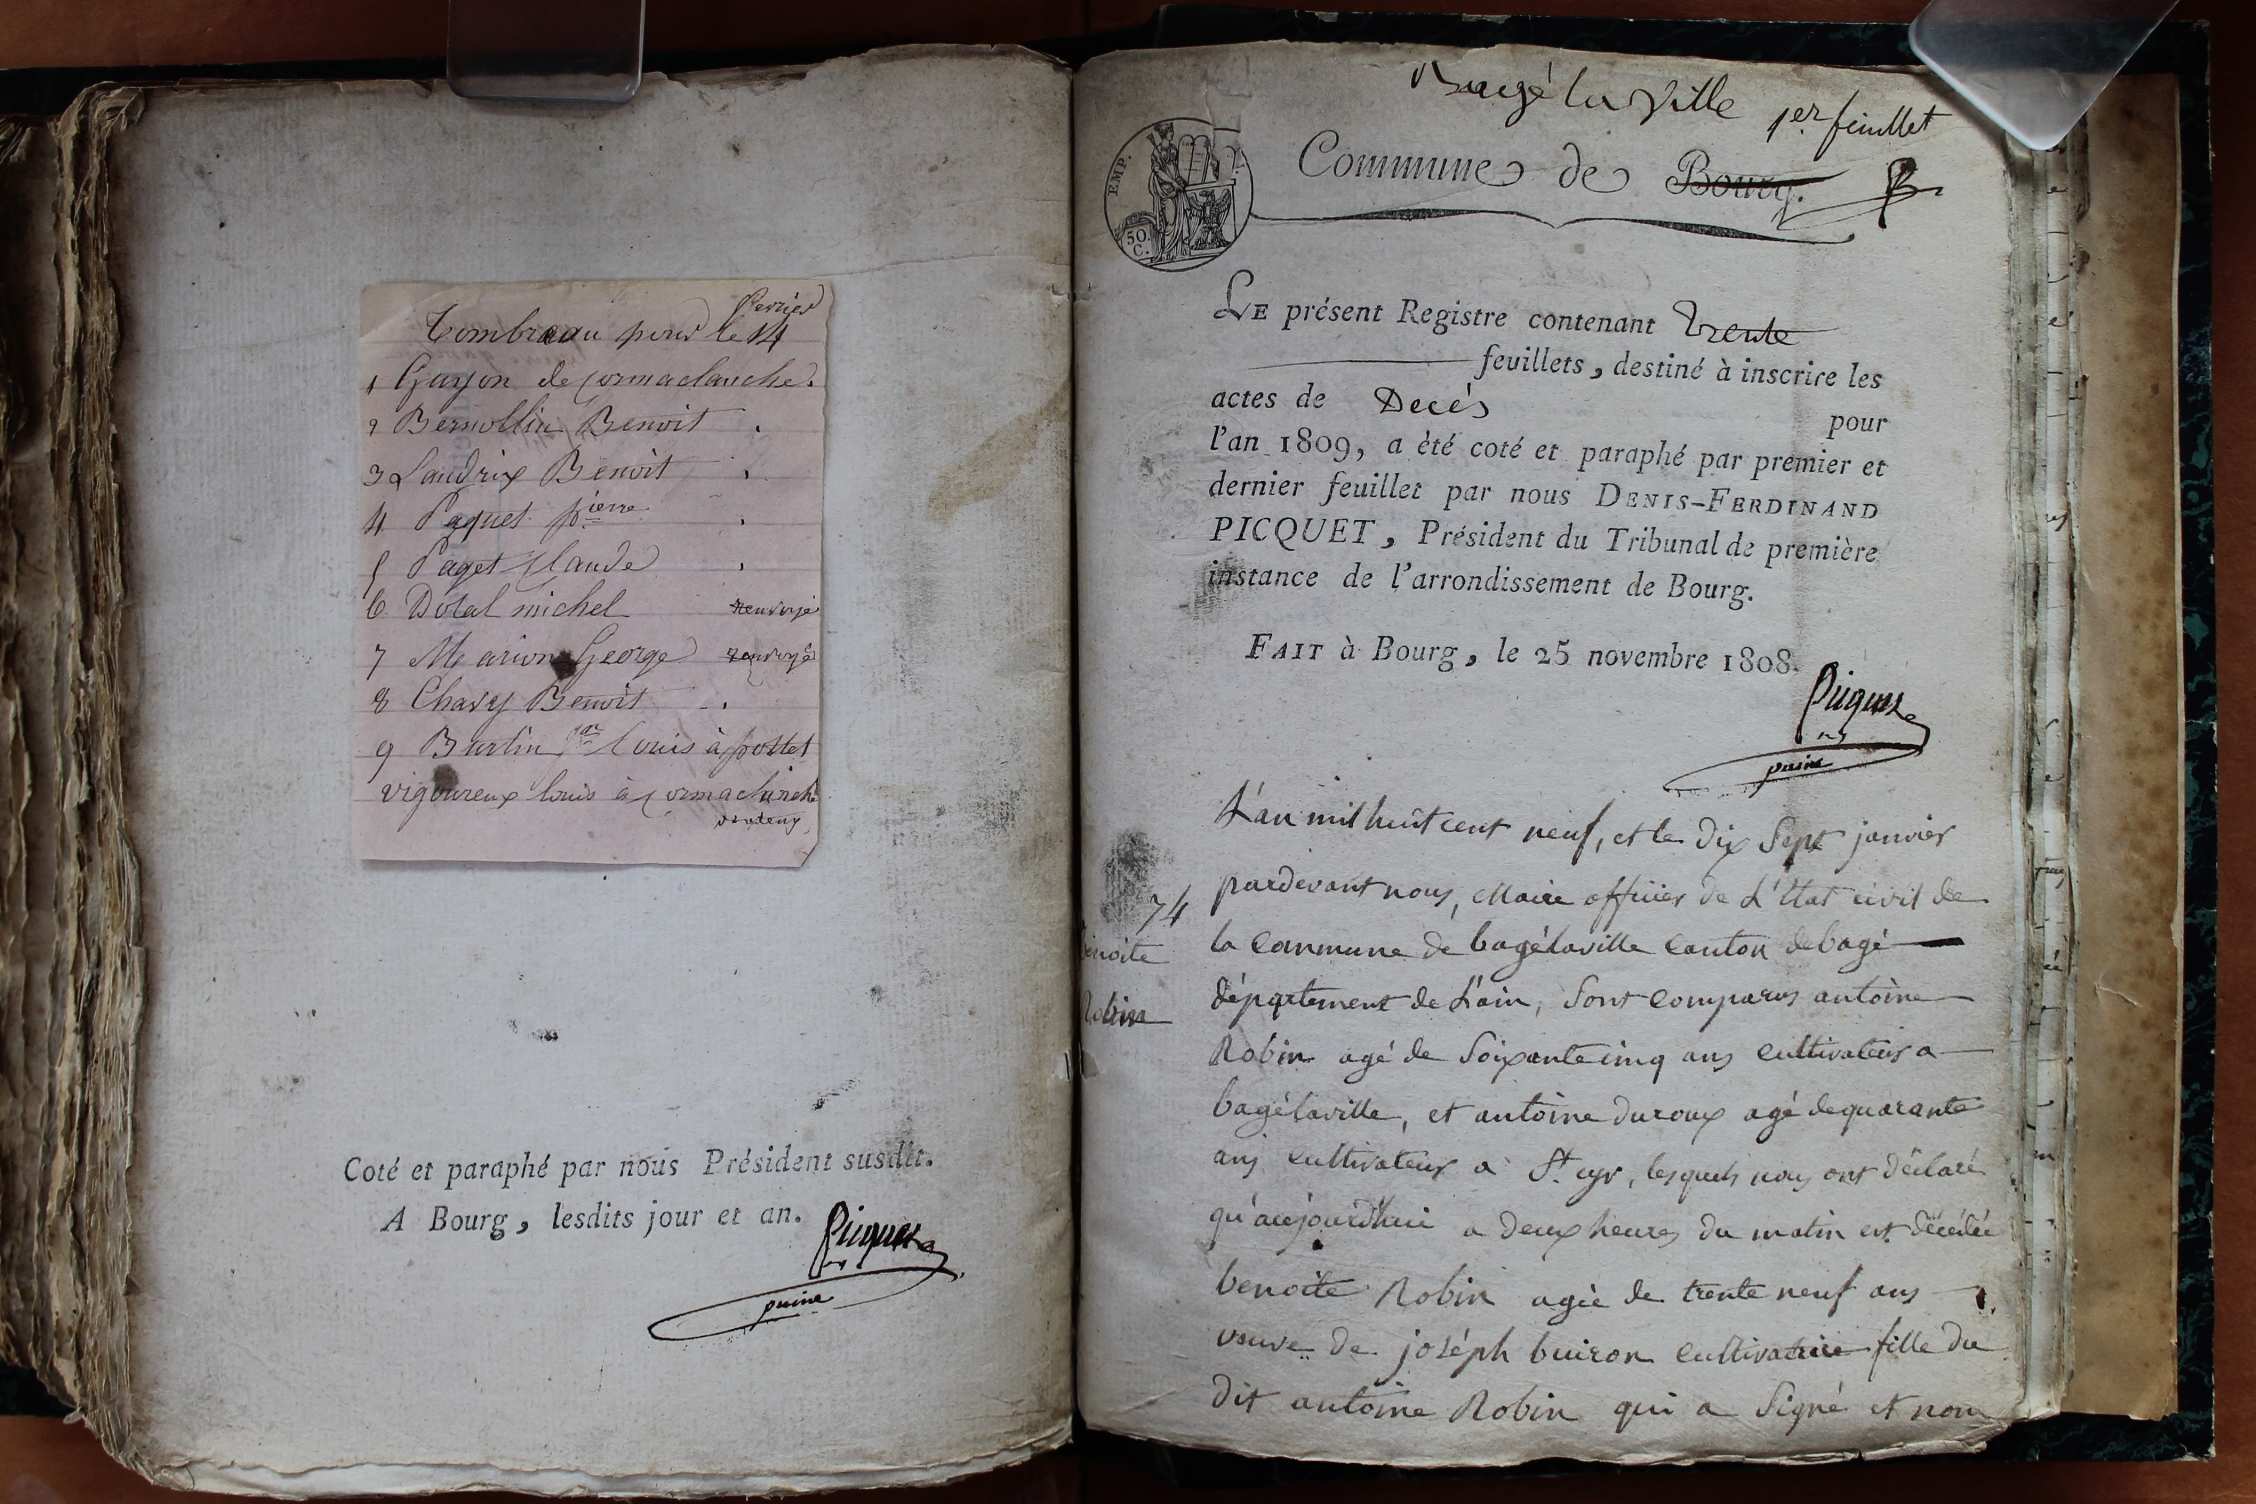 fevrier
Tombreau pour le 14
1 Guyon de Cormaclanche.
2 Bernollin Benoit .
3 Landrix Benoit .
4 Paquet pierre .
5 Paget Claude .
6 Dotal michel renvoyé
7 Marion George renvoyé
8 Chavy Benoit - .
9 Burtin Jan Louis à pottet
vigoureux louis à Cormaclinche
Coté et paraphé par nous Président susdit.
A Bourg, lesdits jour et an.
Picquet
Bagé la ville
1er feuillet
EMP.
50.
C.
Commune de Bourg.
LE présent Registre contenant Trente
feuillets, destiné à inscrire les
actes de Decés pour
l'an 1809, a été coté et paraphé par premier et
dernier feuillet par nous DENIS-FERDINAND
PICQUET, Président du Tribunal de première
instance de l'arrondissement de Bourg.
FAIT à Bourg, le 25 novembre 1808.
Picquet
74
benoite
Robin
L'an mil huit cent neuf, et le dix Sept janvier
pardevant nous, Maire officier de L'Etat civil de
la Commune de bagélaville Canton de bagé
département de L'ain, Sont Comparus antoine
Robin agé de Soixante cinq ans Cultivateur a
bagélaville, et antoine duroux agé de quarante
ans Cultivateur a St. cyr, lesquels nous ont déclaré
qu'aujourd'hui a deux heures du matin est décédée
benoite Robin agée de trente neuf ans
veuve de joséph buiron Cultivatrice fille du
dit antoine Robin qui a Signé et non